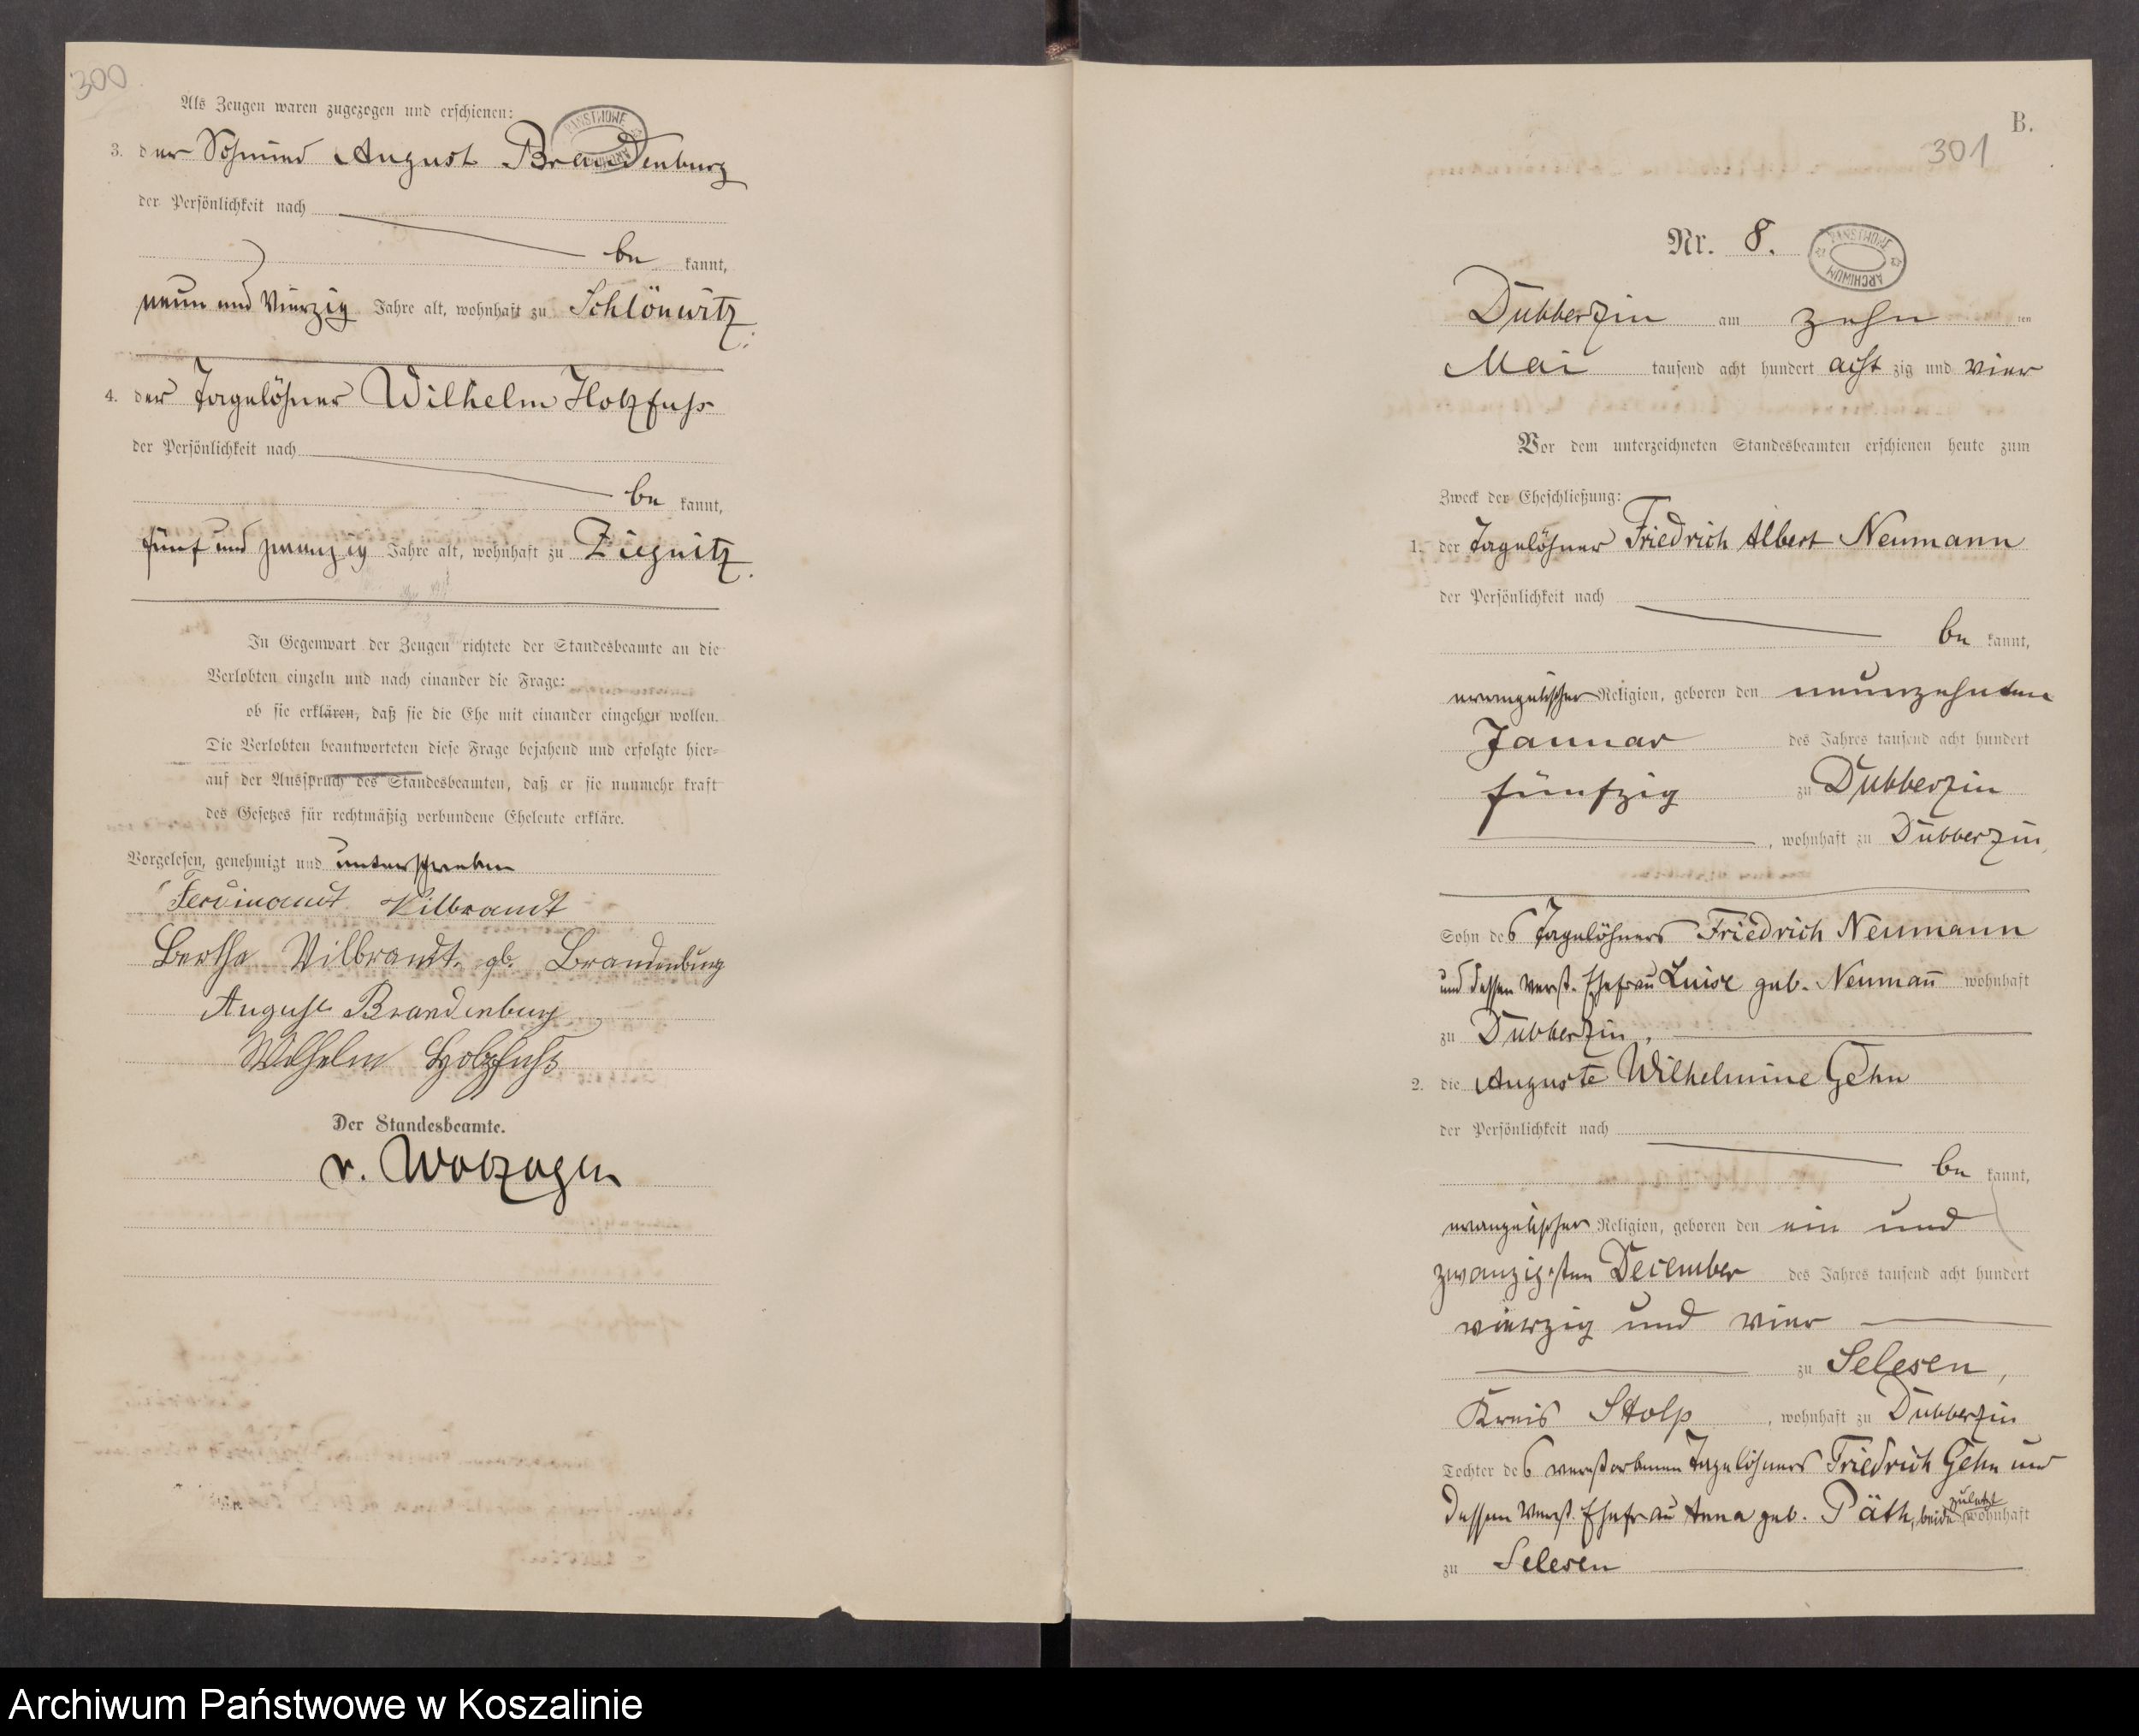 300
Als Zeugen waren zugezogen und erschienen:
PANSTWOWE ARCHIWUM
3. der Schmied August Brandenburg
der Persönlichkeit nach
be kannt,
neun und vierzig Jahre alt, wohnhaft zu Schlönwitz.
4. der Tagelöhner Wilhelm Holzfuss
der Persönlichkeit nach
be kannt,
fünf und zwanzig Jahre alt, wohnhaft zu Ziegnitz.
In Gegenwart der Zeugen richtete der Standesbeamte an die
Verlobten einzeln und nach einander die Frage:
ob sie erklären, daß sie die Ehe mit einander eingehen wollen.
Die Verlobten beantworteten diese Frage bejahend und erfolgte hier=
auf der Ausspruch des Standesbeamten, daß er sie nunmehr kraft
des Gesetzes für rechtmäßig verbundene Eheleute erkläre.
Vorgelesen, genehmigt und unterschrieben
Ferdinandt Vilbrandt
Bertha Vilbrandt. gb. Brandenburg
August Brandenburg
Wilhelm Holzfuhs
Der Standesbeamte.
v. Wolzogen
B.
301
Nr. 8.
PANSTWOWE ARCHIWUM
Dubberzin am zehn ten
Mai tausend acht hundert acht zig und vier
Vor dem unterzeichneten Standesbeamten erschienen heute zum
Zweck der Eheschließung:
1. der Tagelöhner Friedrich Albert Neumann
der Persönlichkeit nach
be kannt,
evangelischer Religion, geboren den neunzehnten
Januar des Jahres tausend acht hundert
fünfzig zu Dubberzin
, wohnhaft zu Dubberzin,
Sohn des Tagelöhners Friedrich Neumann
und dessen verst. Ehefrau Luise geb. Neumañ wohnhaft
zu Dubberzin,
2. die Auguste Wilhelmine Gehn
der Persönlichkeit nach
be kannt,
evangelischer Religion, geboren den ein und
zwanzigsten December des Jahres tausend acht hundert
vierzig und vier
zu Selesen,
Kreis Stolp, wohnhaft zu Dubberzin
Tochter des verstorbenen Tagelöhners Friedrich Gehn und
dessen verst. Ehefrau Anna geb. Päth, beide zuletzt wohnhaft
zu Selesen
Archiwum Państwowe w Koszalinie